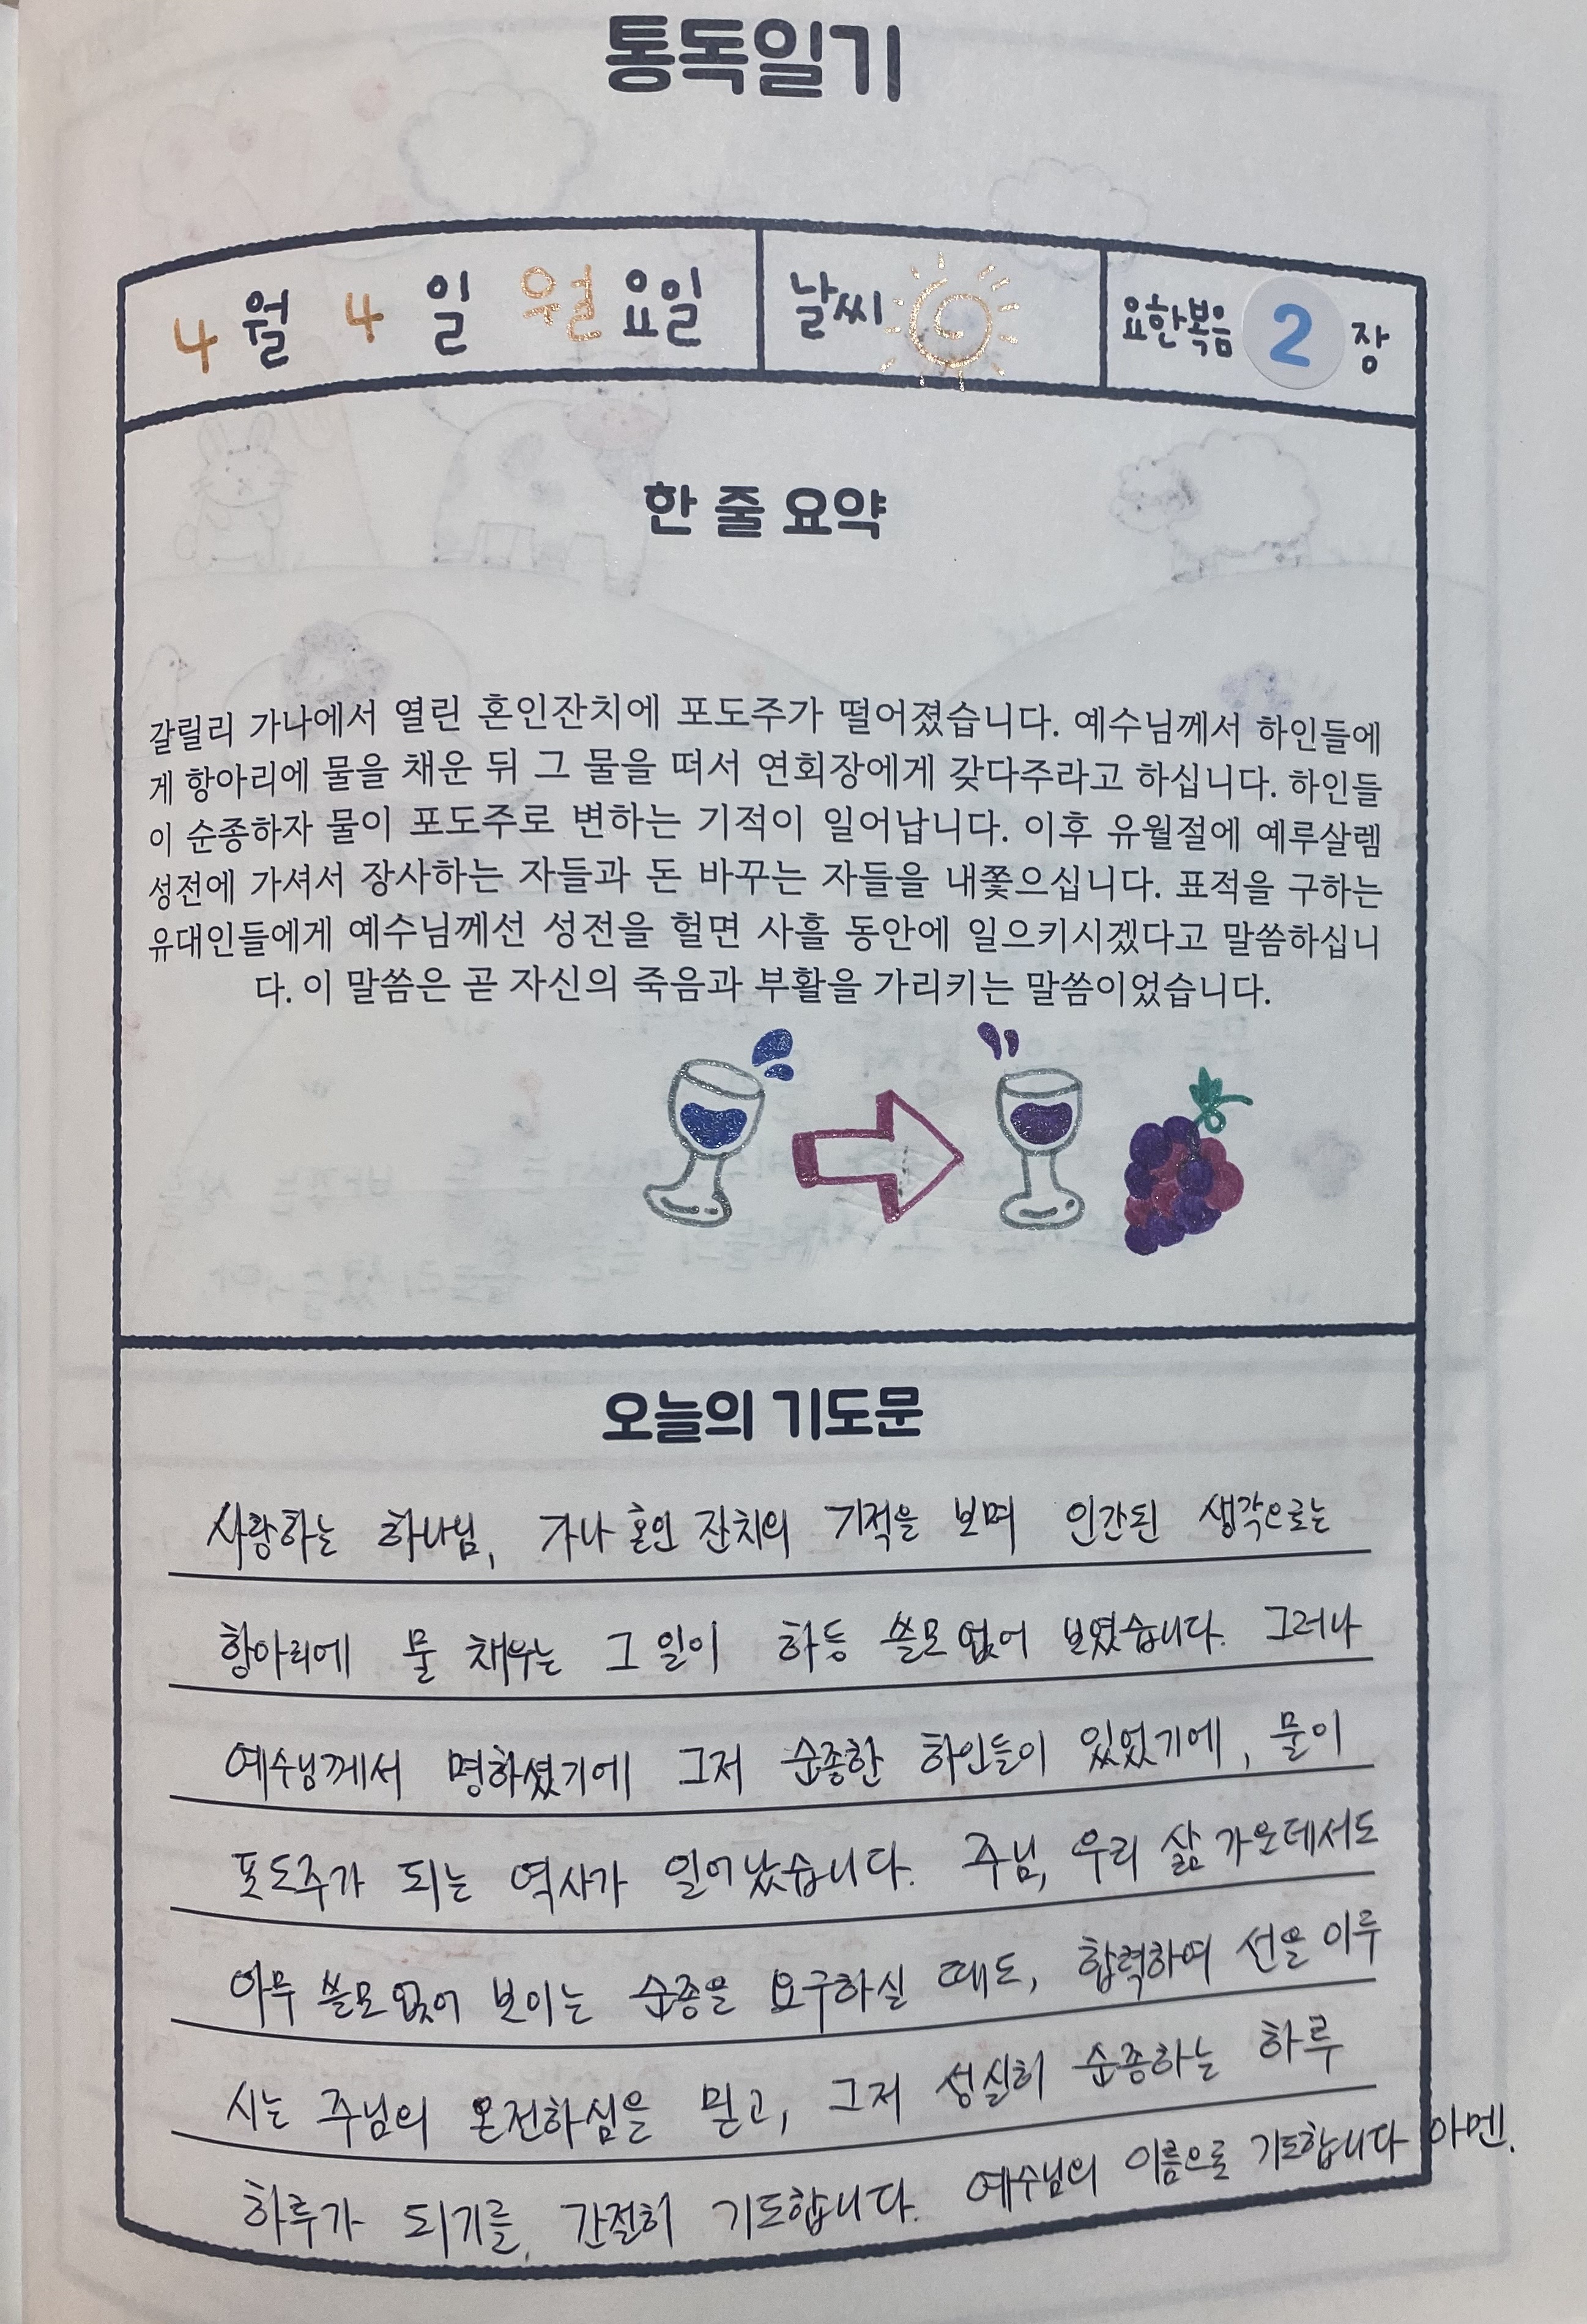 통독일기
4월 4일 월요일 날씨 요한복음 2장
한 줄 요약
갈릴리 가나에서 열린 혼인잔치에 포도주가 떨어졌습니다. 예수님께서 하인들에
게 항아리에 물을 채운 뒤 그 물을 떠서 연회장에게 갖다주라고 하십니다. 하인들
이 순종하자 물이 포도주로 변하는 기적이 일어납니다. 이후 유월절에 예루살렘
성전에 가셔서 장사하는 자들과 돈 바꾸는 자들을 내쫓으십니다. 표적을 구하는
유대인들에게 예수님께선 성전을 헐면 사흘 동안에 일으키시겠다고 말씀하십니
다. 이 말씀은 곧 자신의 죽음과 부활을 가리키는 말씀이었습니다.
오늘의 기도문
사랑하는 하나님, 가나 혼인 잔치의 기적을 보며 인간된 생각으로는
항아리에 물 채우는 그 일이 하등 쓸모없어 보였습니다. 그러나
예수님께서 명하셨기에 그저 순종한 하인들이 있었기에, 물이
포도주가 되는 역사가 일어났습니다. 주님, 우리 삶 가운데서도
아무 쓸모없어 보이는 순종을 요구하실 때도, 합력하여 선을 이루
시는 주님의 온전하심을 믿고, 그저 성실히 순종하는 하루
하루가 되기를, 간절히 기도합니다. 예수님의 이름으로 기도합니다 아멘.